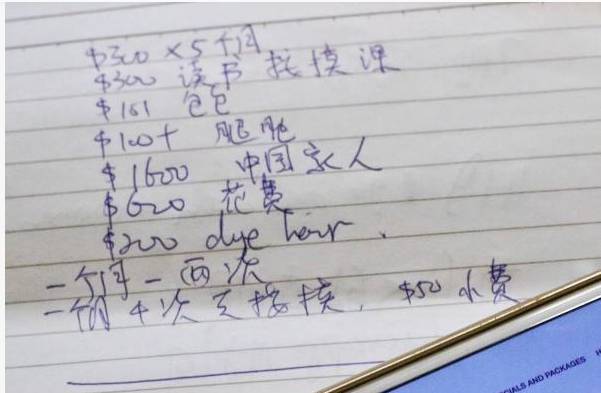 $300 × 5个月
$300 读书 按摸课
$161 包包
$100+ 肥肥
$1600 中国家人
$600 花费
$200 dye hair.
一个月一两次
一个月4次 按摸, $50 小费
IALS AND PACKAGES